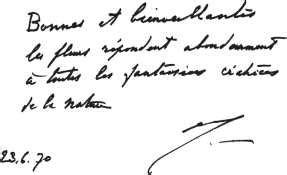 Bonnes et bienveillantes
les fleurs répondent abondamment
à toutes les fantaisies
de la nature
23.6.70